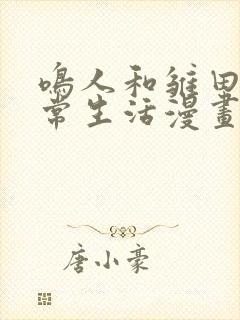 鳴人和雏田
常生活漫畫
唐小豪